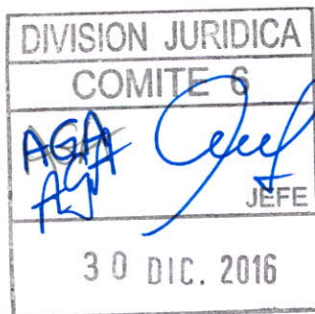 DIVISION JURIDICA
COMITE 6
AGA
JEFE
30 DIC. 2016